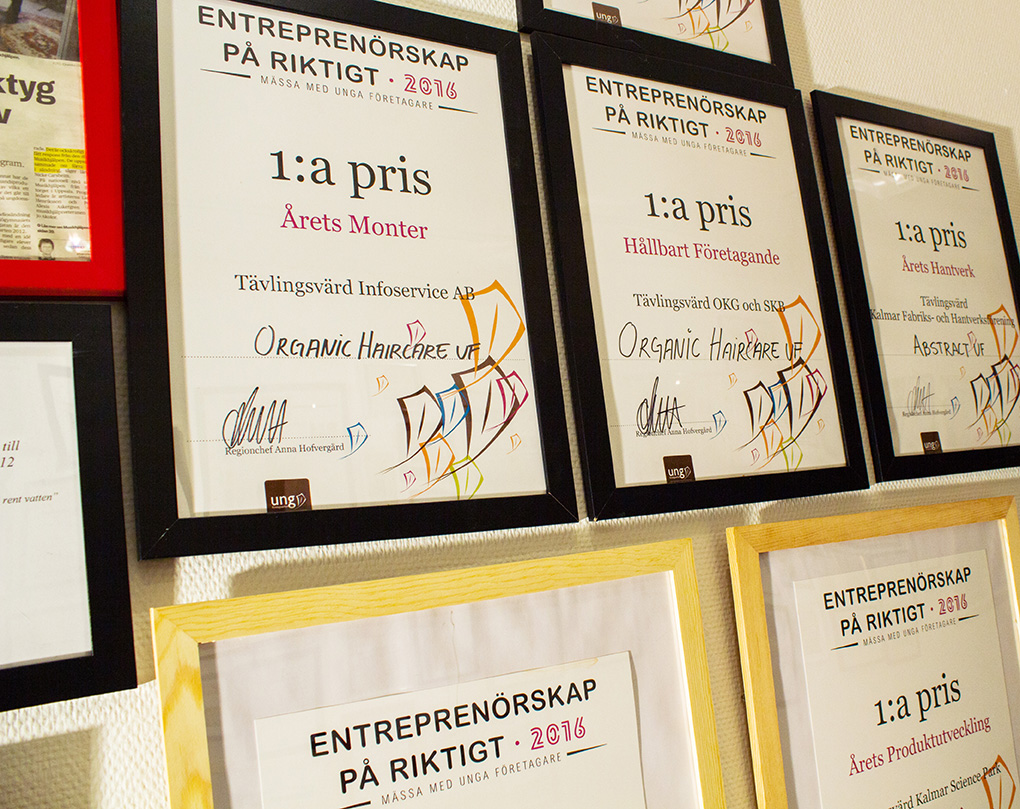 ktyg
v
gram.
till
12
rent vatten"
ENTREPRENÖRSKAP
PÅ RIKTIGT · 2016
MÄSSA MED UNGA FÖRETAGARE
1:a pris
Årets Monter
Tävlingsvärd Infoservice AB
ORGANIC HAIRCARE UF
Regionchef Anna Hofvergård
ung
ung
ENTREPRENÖRSKAP
PÅ RIKTIGT · 2016
MÄSSA MED UNGA FÖRETAGARE
1:a pris
Hållbart Företagande
Tävlingsvärd OKG och SKB
ORGANIC HAIRCARE UF
Regionchef Anna Hofvergård
ung
ENTREPRENÖRSKAP
PÅ RIKTIGT · 2016
MÄSSA MED UNGA FÖRETAGARE
1:a pris
Årets Hantverk
Tävlingsvärd
Kalmar Fabriks- och Hantverksförening
ABSTRACT UF
Regionchef Anna Hofvergård
ung
ENTREPRENÖRSKAP
PÅ RIKTIGT · 2016
MÄSSA MED UNGA FÖRETAGARE
ENTREPRENÖRSKAP
PÅ RIKTIGT · 2016
MÄSSA MED UNGA FÖRETAGARE
1:a pris
Årets Produktutveckling
värd Kalmar Science Park